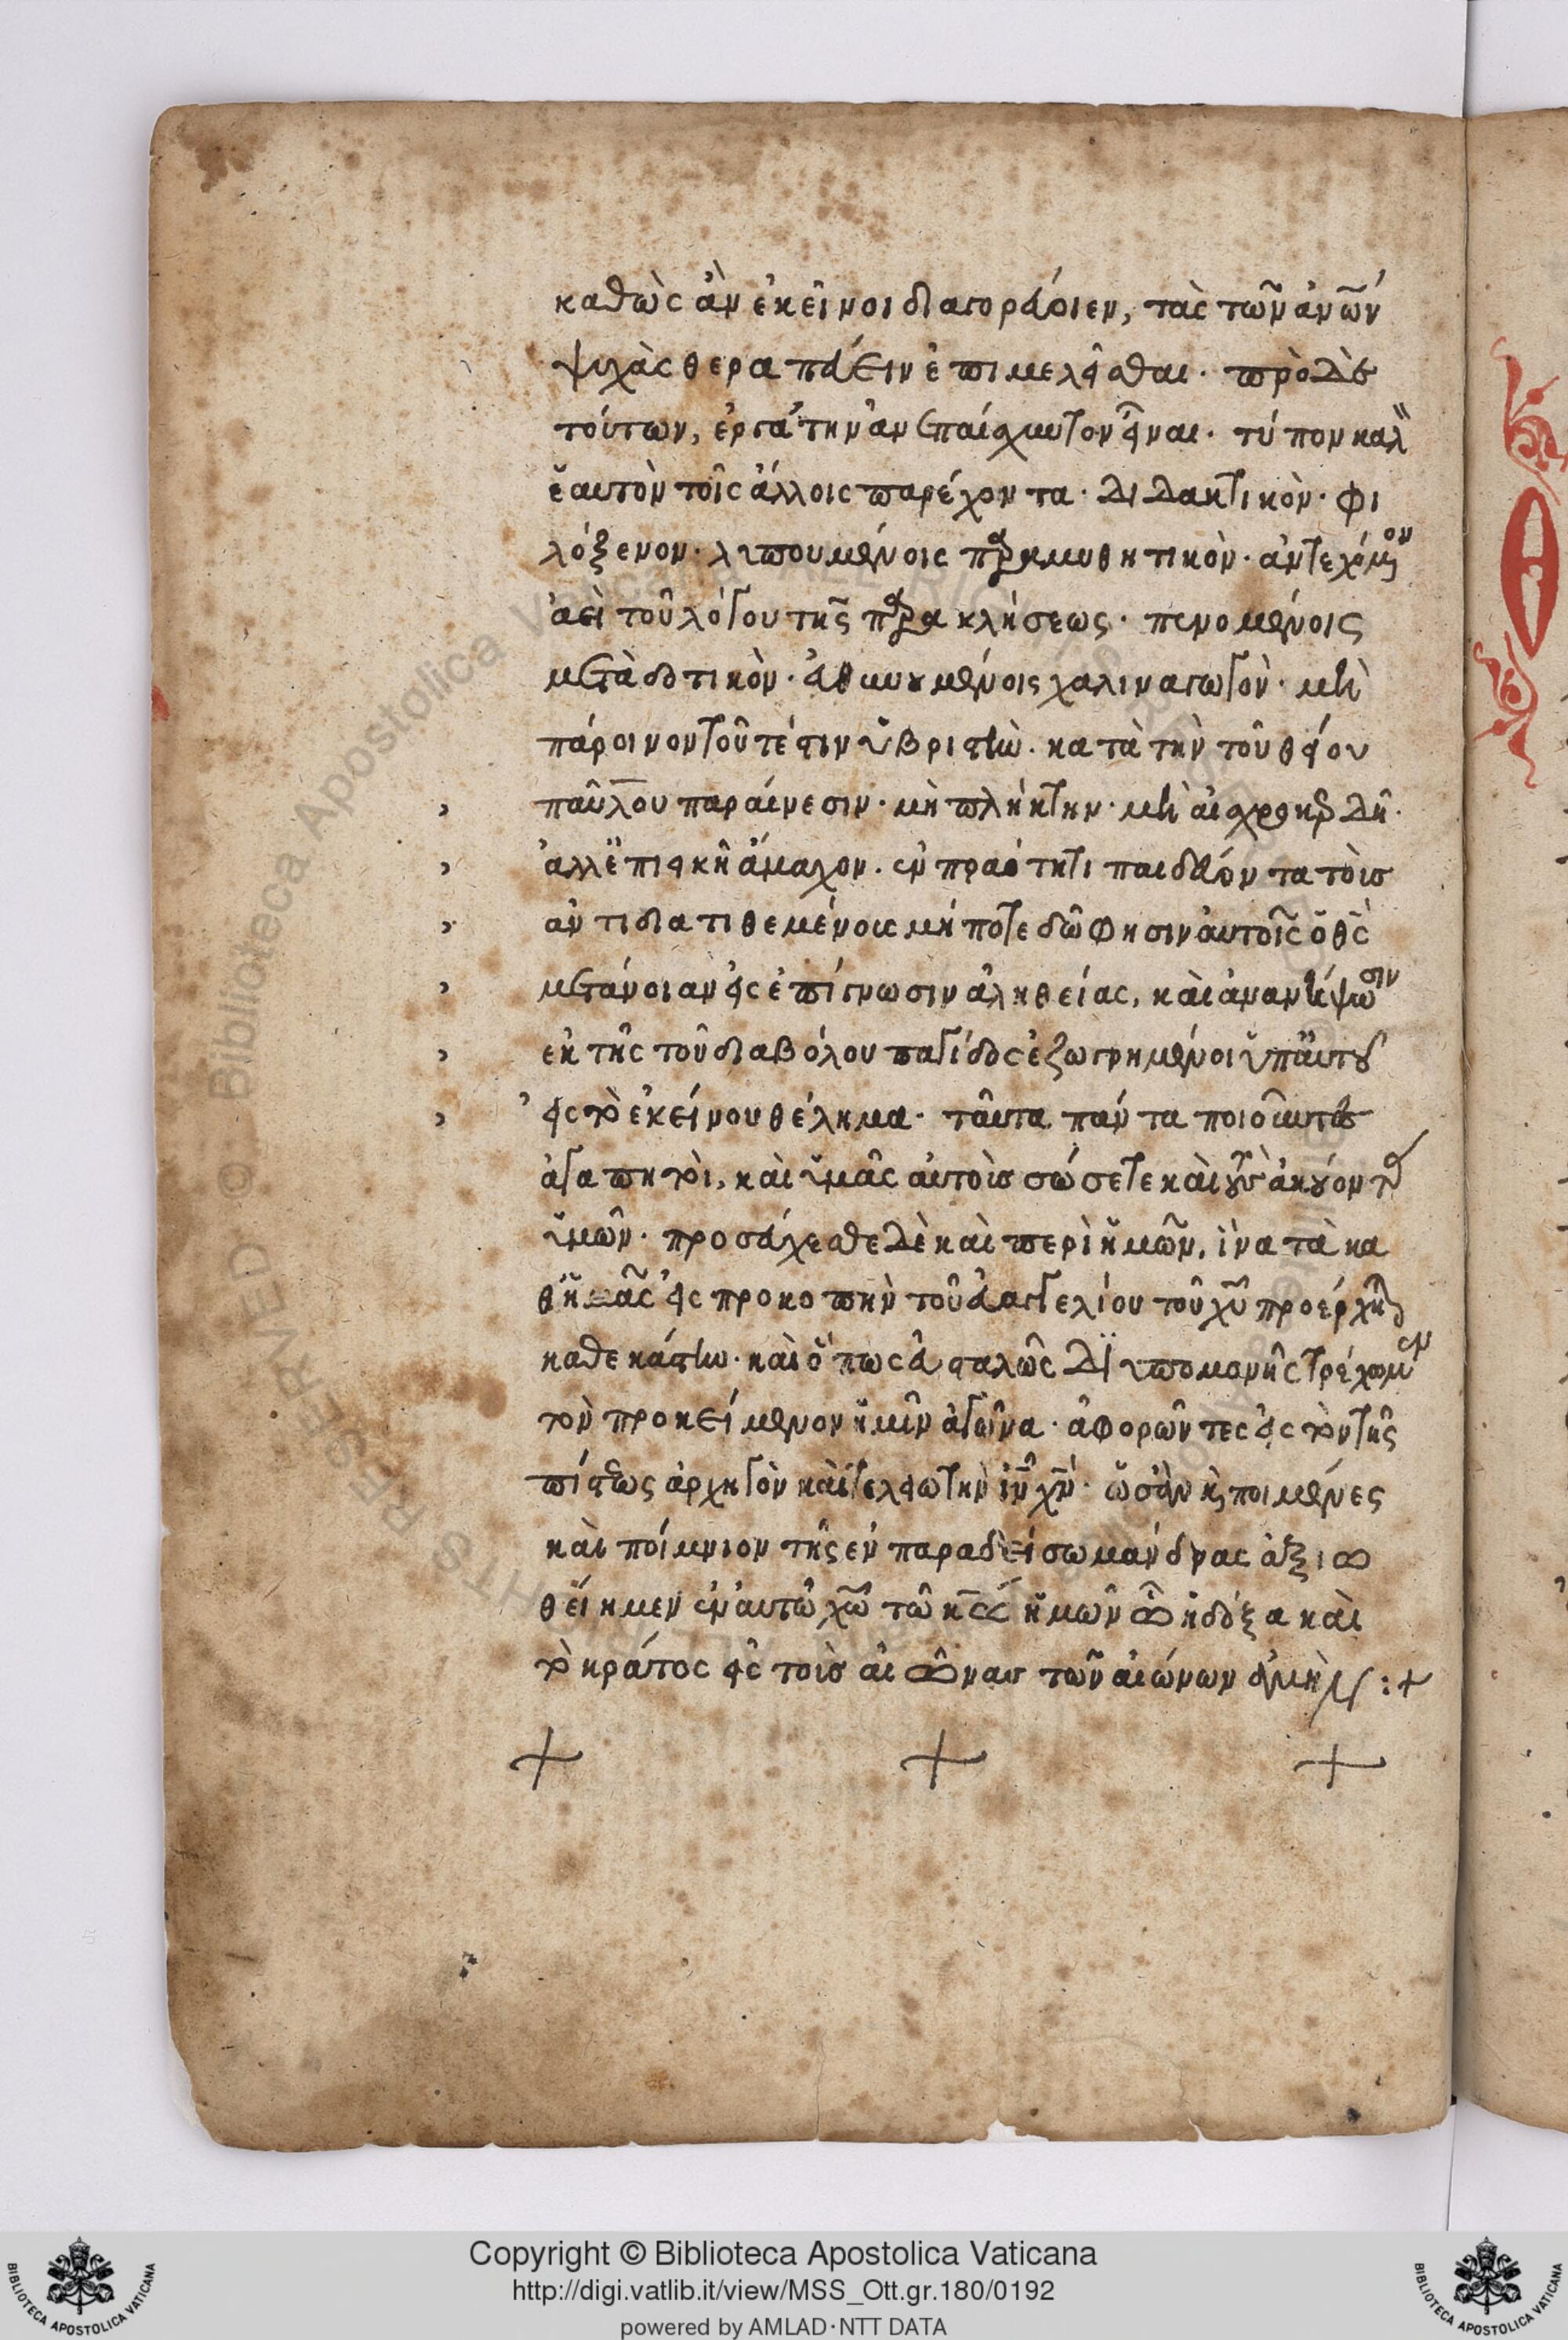 καθὼς ἂν ἐκεῖνοι διαγοράοιεν, τὰς τῶν ἀνων
ψυχὰς θεραπεύειν ἐπιμελεῖσθαι. πρὸ δὲ
τούτων, ἐργάτην ἀνεπαίσχυντον εἶναι. τύπον καλ
ἑαυτὸν τοῖς ἄλλοις παρέχοντα. διδακτικὸν. φι
λόξενον. λυπουμένοις παραμυθητικὸν. ἀντεχόμενον
ἀεὶ τοῦ λόγου τῆς παρακλήσεως. πενομένοις
μεταδοτικὸν. χαλιναγωγὸν. μὴ
πάροινον τουτέστιν ὑβριστὴν. κατὰ τὴν τοῦ θείου
παύλου παραίνεσιν. μὴ πλήκτην. μὴ αἰσχροκερδῆ.
ἀλλ' ἐπιεικῆ ἄμαχον. ἐν πραότητι παιδεύοντα τοὺς
ἀντιδιατιθεμένους μήποτε δώῃ αὐτοῖς ὁ θς
μετάνοιαν εἰς ἐπίγνωσιν ἀληθείας, καὶ ἀνανήψωσιν
ἐκ τῆς τοῦ διαβόλου παγίδος ἐζωγρημένοι ὑπ' αὐτοῦ
εἰς τὸ ἐκείνου θέλημα. ταῦτα πάντα ποιοῦντες
ἀγαπητοὶ, καὶ ὑμᾶς αὐτοὺς σώσετε καὶ τοὺς ἀκούοντας
ὑμῶν. προσεύχεσθε δὲ καὶ περὶ ἡμῶν, ἵνα τὰ κα
θ' ἡμᾶς εἰς προκοπὴν τοῦ εὐαγγελίου τοῦ χυ προέρχηται
καθεκάστην. καὶ ὅπως εὐσταλῶς δι' ὑπομονῆς τρέχωμεν
τὸν προκείμενον ἡμῖν ἀγῶνα. ἀφορῶντες εἰς τὸν τῆς
πίστεως ἀρχηγὸν καὶ τελειωτὴν ιν χν. ὡς ἂν καὶ ποιμένες
καὶ ποίμνιον τῆς ἐν παραδείσω μάνδρας ἀξιω
θείημεν ἐν αὐτῶ χω τῶ κω ἡμῶν ὧ ἡ δόξα καὶ
τὸ κράτος εἰς τοὺς αἰῶνας τῶν αἰώνων ἀμήν :+
+ + +
Copyright © Biblioteca Apostolica Vaticana
http://digi.vatlib.it/view/MSS_Ott.gr.180/0192
powered by AMLAD·NTT DATA
BIBLIOTECA APOSTOLICA VATICANA
BIBLIOTECA APOSTOLICA VATICANA